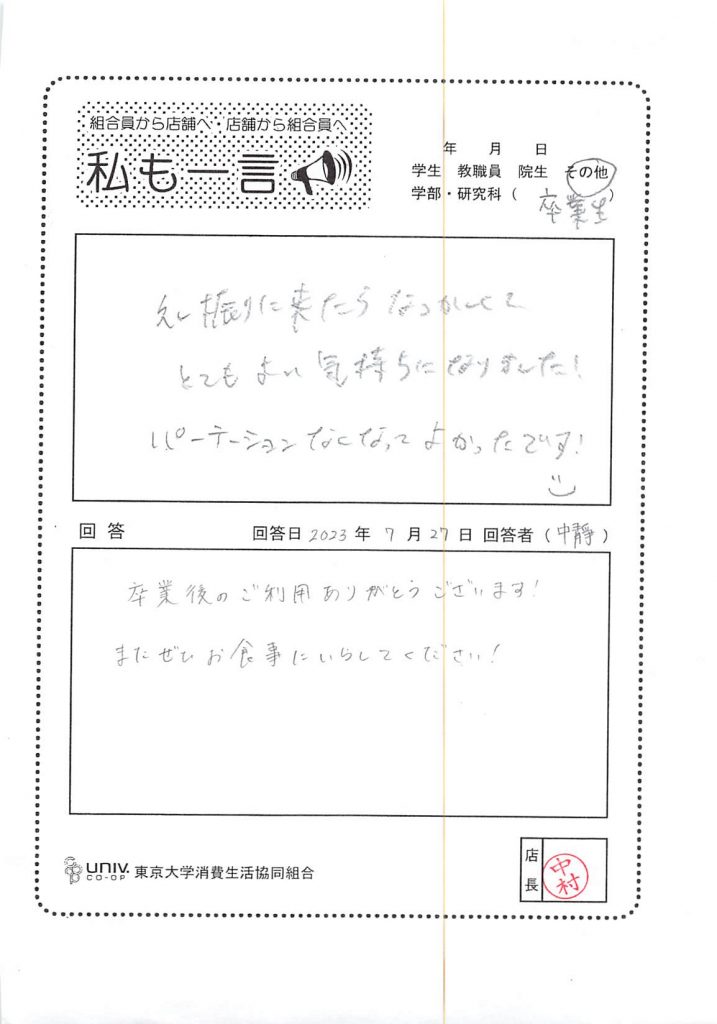 組合員から店舗へ・店舗から組合員へ
私も一言
年 月 日
学生 教職員 院生 その他
学部・研究科( 卒業生 )
久し振りに来たらなつかしくて
とてもよい気持ちになりました!
パーテーションなくなってよかったです!
回答 回答日 2023 年 7 月 27 日 回答者 (中靜)
卒業後のご利用ありがとうございます!
またぜひお食事にいらしてください!
UNIV.
CO-OP
東京大学消費生活協同組合
店長
中村